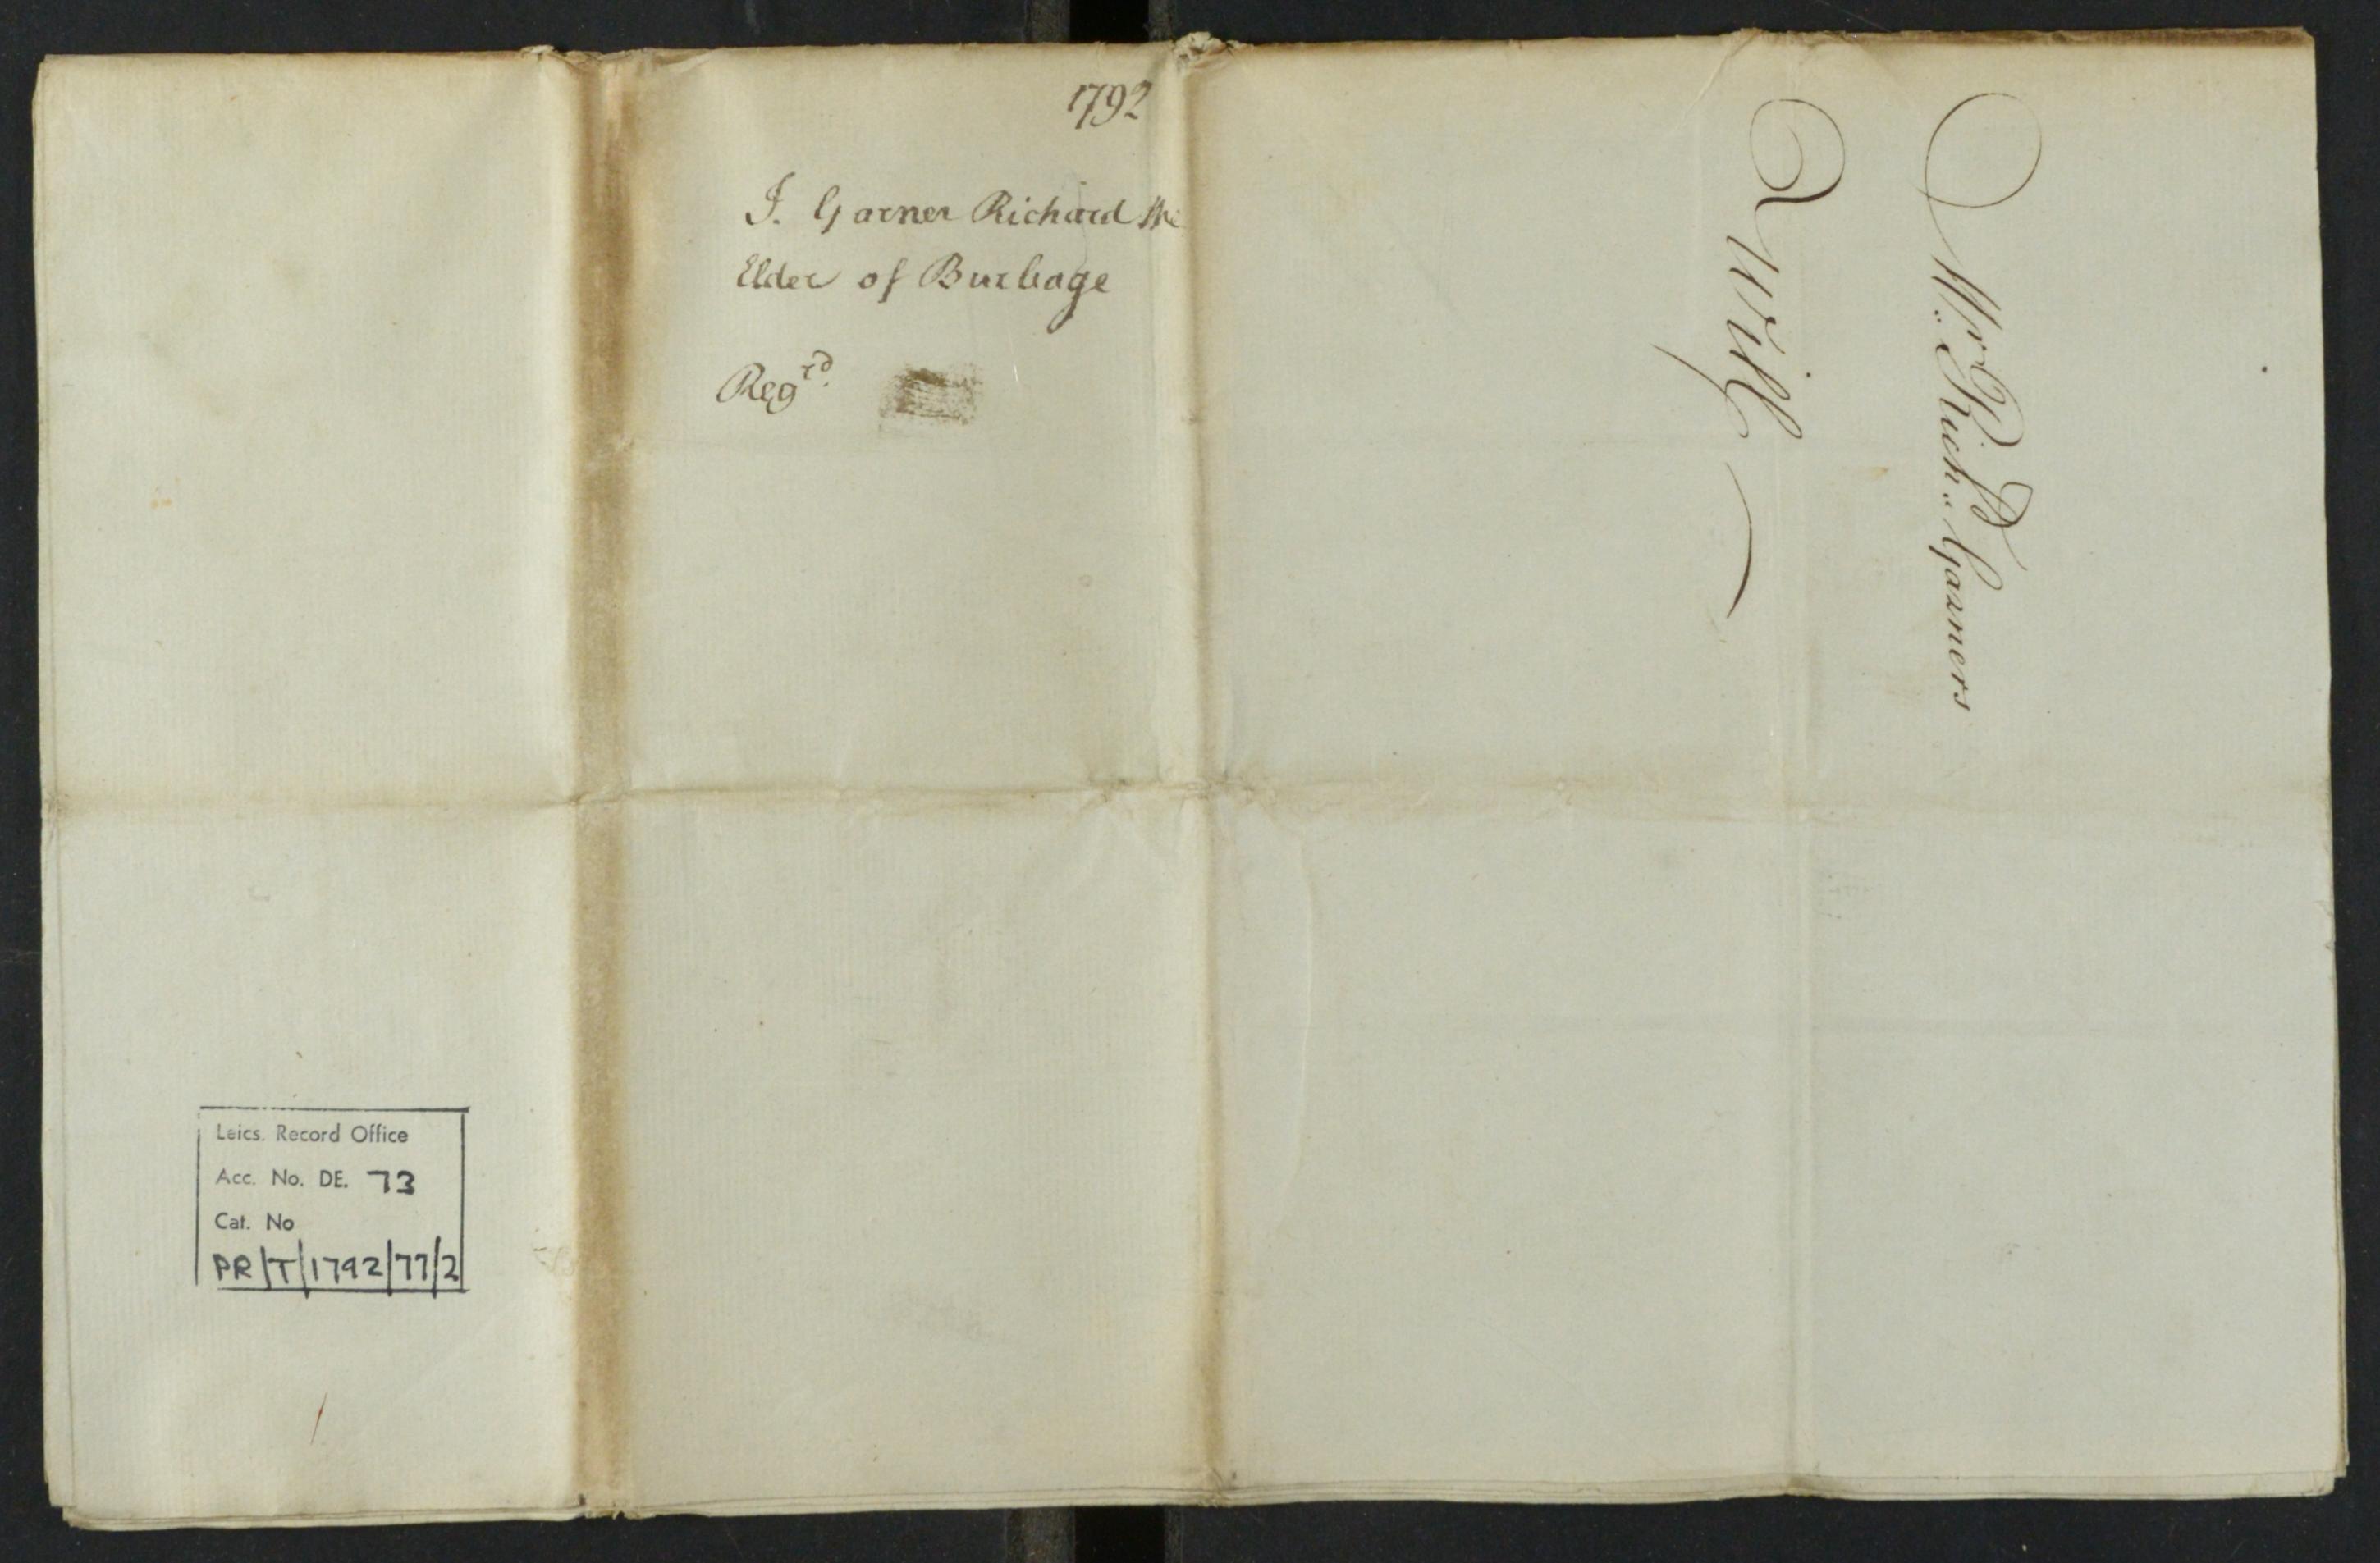 1792
J. Garner Richard the
Elder of Burbage
Regrd.
Mr. Richd. Garners
Will
Leics. Record Office
Acc. No. DE. 73
Cat. No
PR/T/1792/77/2